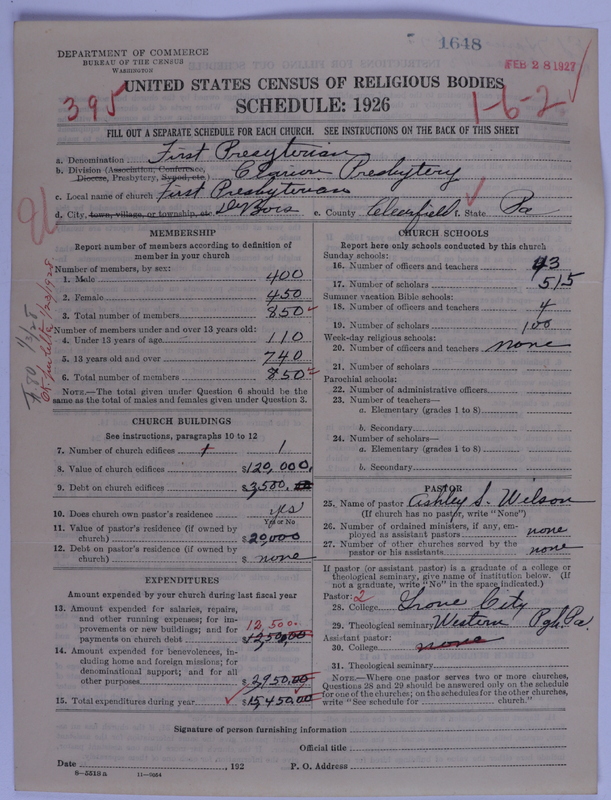 1648
DEPARTMENT OF COMMERCE
BUREAU OF THE CENSUS
WASHINGTON
FEB 28 1927
UNITED STATES CENSUS OF RELIGIOUS BODIES
395
SCHEDULE: 1926
1-6-2
FILL OUT A SEPARATE SCHEDULE FOR EACH CHURCH. SEE INSTRUCTIONS ON THE BACK OF THIS SHEET
a. Denomination First Presyterian
b. Division (Association, Conference, Diocese, Presbytery, Synod, etc.) Clarion Presbytery
c. Local name of church First Presbyterian
d. City, town, village, or township, etc. DuBois e. County Clearfield f. State Pa
MEMBERSHIP
Report number of members according to definition of
member in your church
Number of members, by sex:
1. Male 400
2. Female 450
3. Total number of members 850
Number of members under and over 13 years old:
4. Under 13 years of age 110
5. 13 years old and over 740
6. Total number of members 850
NOTE.—The total given under Question 6 should be
same as the total of males and females given under Question 3.
CHURCH BUILDINGS
See instructions, paragraphs 10 to 12
7. Number of church edifices 1
8. Value of church edifices $120,000.
9. Debt on church edifices $3,500.
10. Does church own pastor's residence yes
Yes or No
11. Value of pastor's residence (if owned by
church) $20,000
12. Debt on pastor's residence (if owned by
church) $ none
EXPENDITURES
Amount expended by your church during last fiscal year
13. Amount expended for salaries, repairs,
and other running expenses; for im-
provements or new buildings; and for 12,500.
payments on church debt $1250,00
14. Amount expended for benevolences, in-
cluding home and foreign missions; for
denominational support; and for all
other purposes $2950.00
15. Total expenditures during year $15,450.00
CHURCH SCHOOLS
Report here only schools conducted by this church
Sunday schools:
16. Number of officers and teachers 43
17. Number of scholars 515
Summer vacation Bible schools:
18. Number of officers and teachers 4
19. Number of scholars 100
Week-day religious schools:
20. Number of officers and teachers none
21. Number of scholars
Parochial schools:
22. Number of administrative officers
23. Number of teachers—
a. Elementary (grades 1 to 8)
b. Secondary
24. Number of scholars—
a. Elementary (grades 1 to 8)
b. Secondary
PASTOR
25. Name of pastor Ashley S. Wilson
(If church has no pastor, write "None")
26. Number of ordained ministers, if any, em-
ployed as assistant pastors none
27. Number of other churches served by the
pastor or his assistants none
If pastor (or assistant pastor) is a graduate of a college or
theological seminary, give name of institution below. (If
not a graduate, write "No" in the space, indicated.)
Pastor: 2
28. College Grove City
29. Theological seminary Western Pgh, Pa
Assistant pastor:
30. College none
31. Theological seminary
NOTE.—Where one pastor serves two or more churches,
Questions 28 and 29 should be answered only on the schedule
for one of the churches; on the schedules for the other churches,
write "See schedule for church."
Signature of person furnishing information
Official title
Date , 192 P. O. Address
8-5518a 11-8664